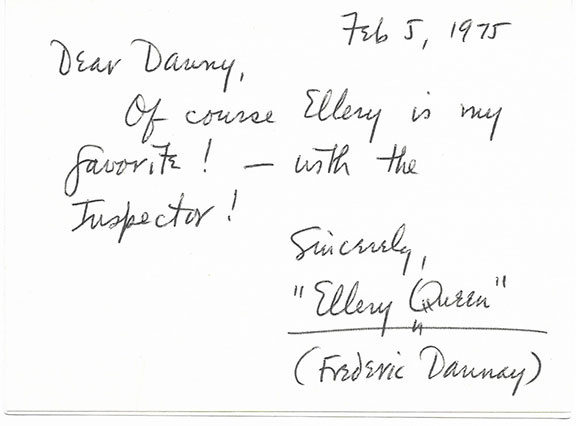 Feb 5, 1975
Dear Danny,
Of course Ellery is my
favorite! — with the
Inspector!
Sincerely,
"Ellery Queen"
(Frederic Dannay)